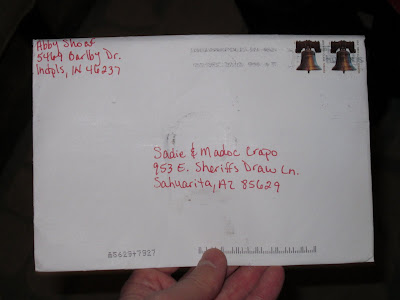 Abby Shoaf
5469 Barlby Dr.
Indpls, IN 46237
Sadie & Madoc Crapo
953 E. Sheriffs Draw Ln.
Sahuarita, AZ 85629
85629+7927